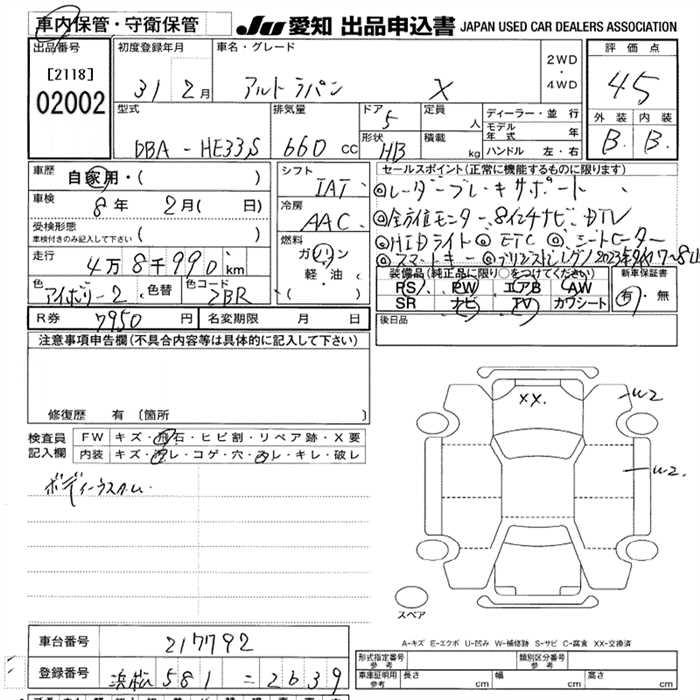 車内保管・守衛保管
JU 愛知 出品申込書 JAPAN USED CAR DEALERS ASSOCIATION
出品番号
[2118]
02002
初度登録年月
31 2月
車名・グレード
アルトラパン X
2WD
・
4WD
評価点
4.5
外装 内装
B. B.
型式
DBA-HE33S
排気量
660 cc
ドア 5
形状 HB
定員 人
積載 kg
ディーラー・並行
モデル年式 年
ハンドル 左・右
車歴 自家用・( )
車検 8年 2月( 日)
受検形態
車検付きのみ記入して下さい ( )
走行 4万8千990km
色 アイボリー2 色替 色コード ZBR
シフト
IAT
冷房
AAC
燃料
ガソリン
・軽・油
( )
セールスポイント(正常に機能するものに限ります)
◎レーダーブレーキサポート
◎全方位モニター 8インチナビ DTV
◎HIDライト ◎ETC ◎シートヒーター
◎スマートキー ◎ブリヂストン
装備品(純正品に限り○をつけてください)
PS PW エアB AW
SR ナビ TV カワシート
新車保証書
有・無
後日品
R券 7950円 名変期限 月 日
注意事項申告欄(不具合内容等は具体的に記入して下さい)
修復歴 有〔箇所
検査員
記入欄
FW キズ・飛石・ヒビ割・リペア跡・X要
内装 キズ・コゲ・穴・キレ・破レ
ボディーウスカム
XX.
W2
W2
スペア
A-キズ E-エクボ U-凹み W-補修跡 S-サビ C-腐食 XX-交換済
車台番号 217792
登録番号 浜松 581 = 2639
形式指定番号 参考
類別区分番号 参考
車庫証明用 参考 長さ cm 幅 cm 高さ cm